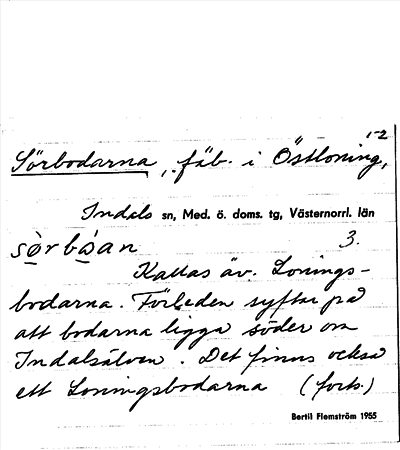 1-2
Sörbodarna, fäb. i Östloning,
Indals sn, Med. ö. doms. tg, Västernorrl. län
3.
Kallas äv. Lonings-
bodarna. Förleden syftar på
att bodarna ligga söder om
Indalsälven. Det finns också
ett Loningsbodarna (forts.)
Bertil Flemström 1955